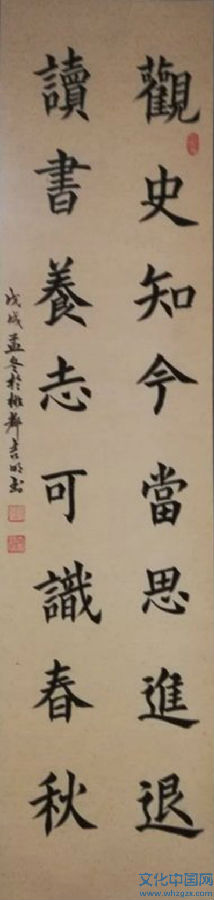 觀史知今當思進退
讀書養志可識春秋
戊戌孟冬於
吉明書
文化中国网
www.whzgzx.com